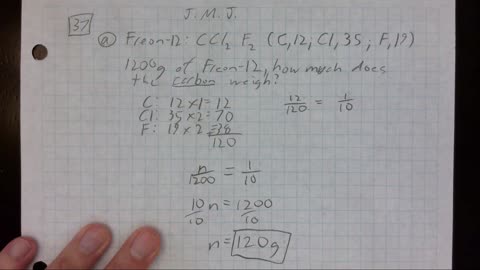 J.M.J.
37
a Freon-12: CCl2 F2 (C,12; Cl,35; F,19)
1200g of Freon-12, how much does
the carbon weigh?
C: 12 x 1 = 12
Cl: 35 x 2 = 70
F: 19 x 2 = 38
120
12/120 = 1/10
n/1200 = 1/10
10n/10 = 1200/10
n = 120g